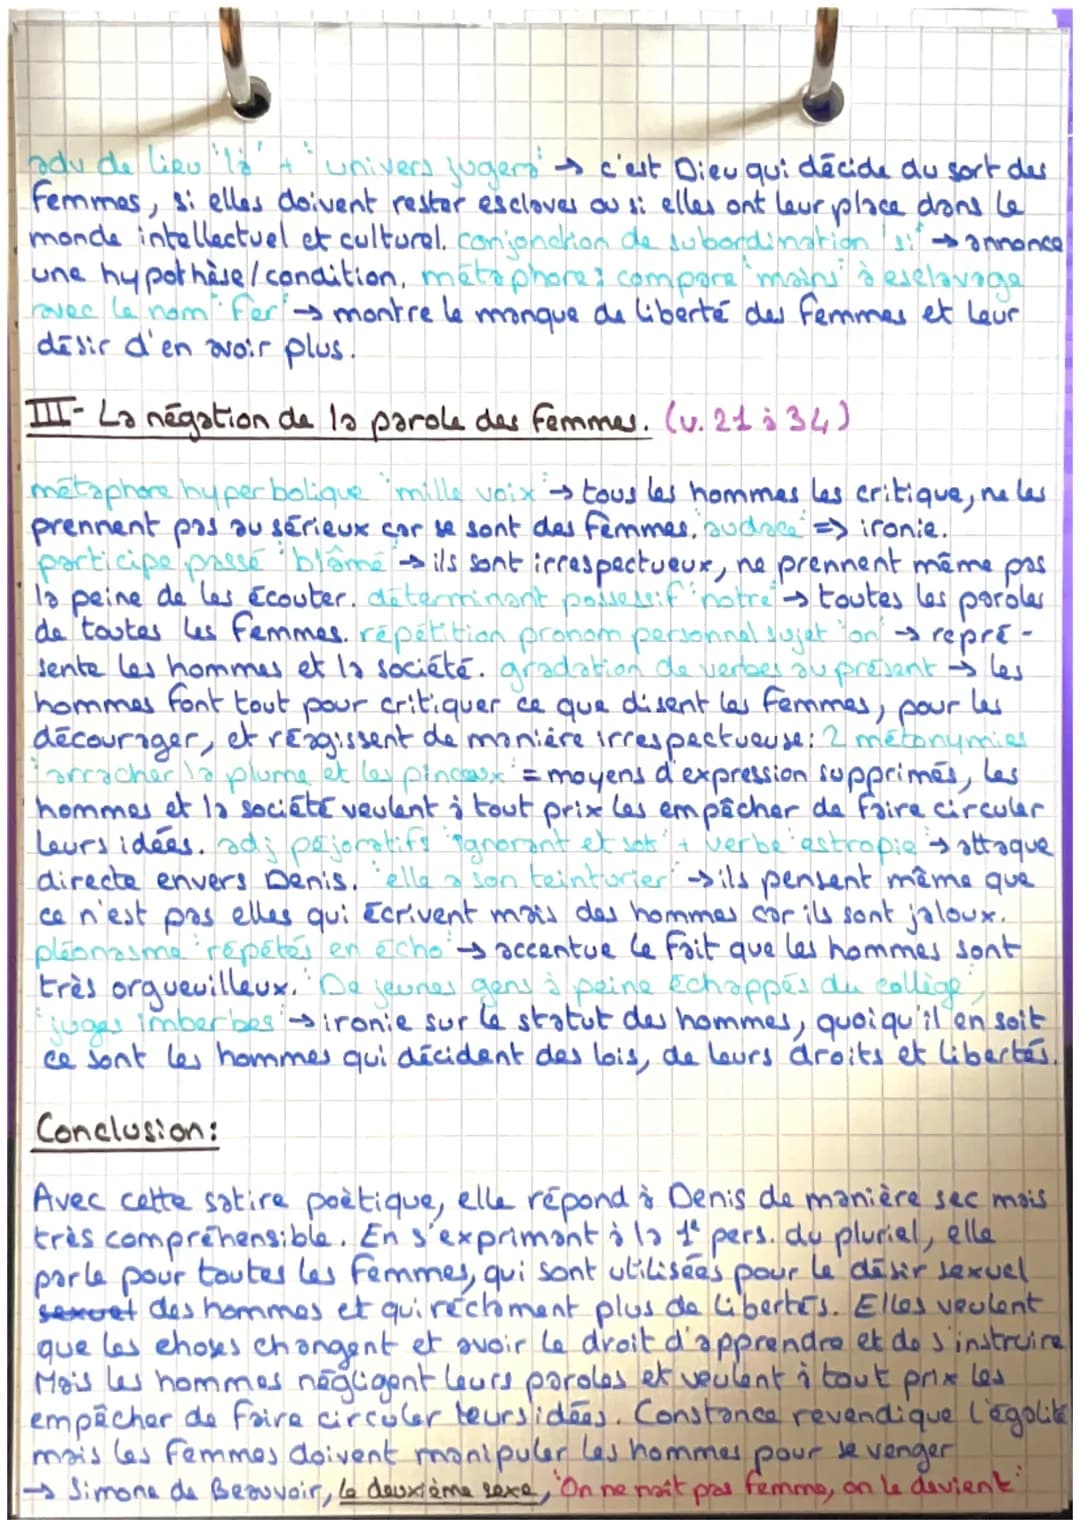 adv de lieu "là" + "univers jugera" → c'est Dieu qui décide du sort des
femmes, si elles doivent rester esclaves ou si elles ont leur place dans le
monde intellectuel et culturel. conjonction de subordination "si" → annonce
une hypothèse/condition. métaphore : compare "mains" à esclavage
avec le nom "fer" → montre le manque de liberté des femmes et leur
désir d'en avoir plus.
III- La négation de la parole des femmes. (v. 21 à 34)
métaphore hyperbolique "mille voix" → tous les hommes les critique, ne les
prennent pas au sérieux car se sont des femmes. "audace" => ironie.
participe passé "blâmé" → ils sont irrespectueux, ne prennent même pas
la peine de les écouter. déterminant possessif "notre" → toutes les paroles
de toutes les femmes. répétition pronom personnel sujet "on" → repré-
sente les hommes et la société. gradation de verbes au présent → les
hommes font tout pour critiquer ce que disent les femmes, pour les
décourager, et réagissent de manière irrespectueuse : 2 métonymies
"arracher la plume et les pinceaux" = moyens d'expression supprimés, les
hommes et la société veulent à tout prix les empêcher de faire circuler
leurs idées. adj péjoratifs "ignorant et sot" + verbe "estropie" → attaque
directe envers Denis. "elle a son teinturier" → ils pensent même que
ce n'est pas elles qui écrivent mais des hommes car ils sont jaloux.
pléonasme "répétés en écho" → accentue le fait que les hommes sont
très orgueuilleux. "De jeunes gens à peine échappés du collège",
"juges imberbes" → ironie sur le statut des hommes, quoiqu'il en soit
ce sont les hommes qui décident des lois, de leurs droits et libertés.
Conclusion :
Avec cette satire poètique, elle répond à Denis de manière sec mais
très compréhensible. En s'exprimant à la 1e pers. du pluriel, elle
parle pour toutes les femmes, qui sont utilisées pour le désir sexuel
sexuel des hommes et qui réclament plus de libertés. Elles veulent
que les choses changent et avoir le droit d'apprendre et de s'instruire
Mais les hommes négligent leurs paroles et veulent à tout prix les
empêcher de faire circuler leurs idées. Constance revendique l'égalité
mais les femmes doivent manipuler les hommes pour se venger
→ Simone de Beauvoir, le deuxième sexe, "On ne naît pas femme, on le devient"